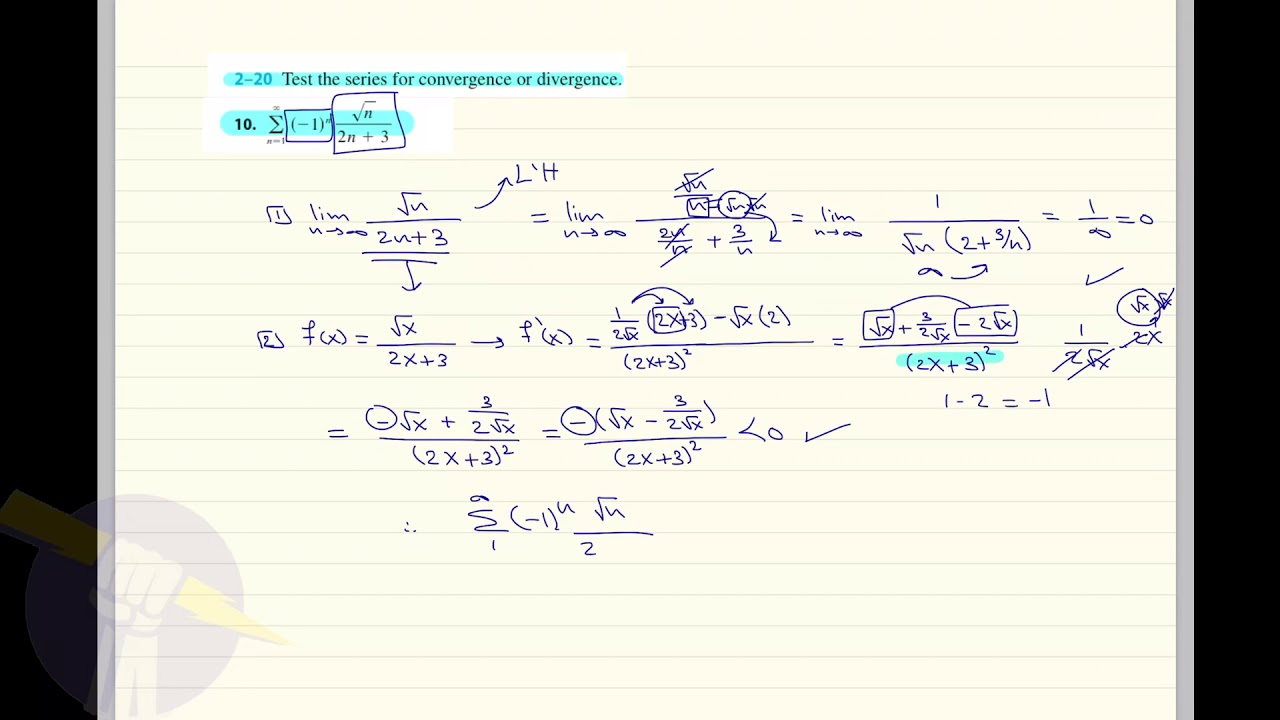 2–20 Test the series for convergence or divergence.
10. ∞ Σ n=1 (−1)ⁿ √n / 2n + 3
[1] lim n→∞ √n / 2n+3 → L'H = lim n→∞ (√n / n = √n √n) / (2n/n + 3/n) = lim n→∞ 1 / √n (2+3/n) = 1/∞ = 0
∞ ✓
[2] f(x) = √x / 2x+3 → f'(x) = (1/2√x (2x+3) − √x (2)) / (2x+3)² = (√x + 3/2√x − 2√x) / (2x+3)² 1/2√x · 2x √x √x
1 - 2 = -1
= (−√x + 3/2√x) / (2x+3)² = −(√x − 3/2√x) / (2x+3)² < 0 ✓
∴ ∞ Σ 1 (−1)ⁿ √n / 2